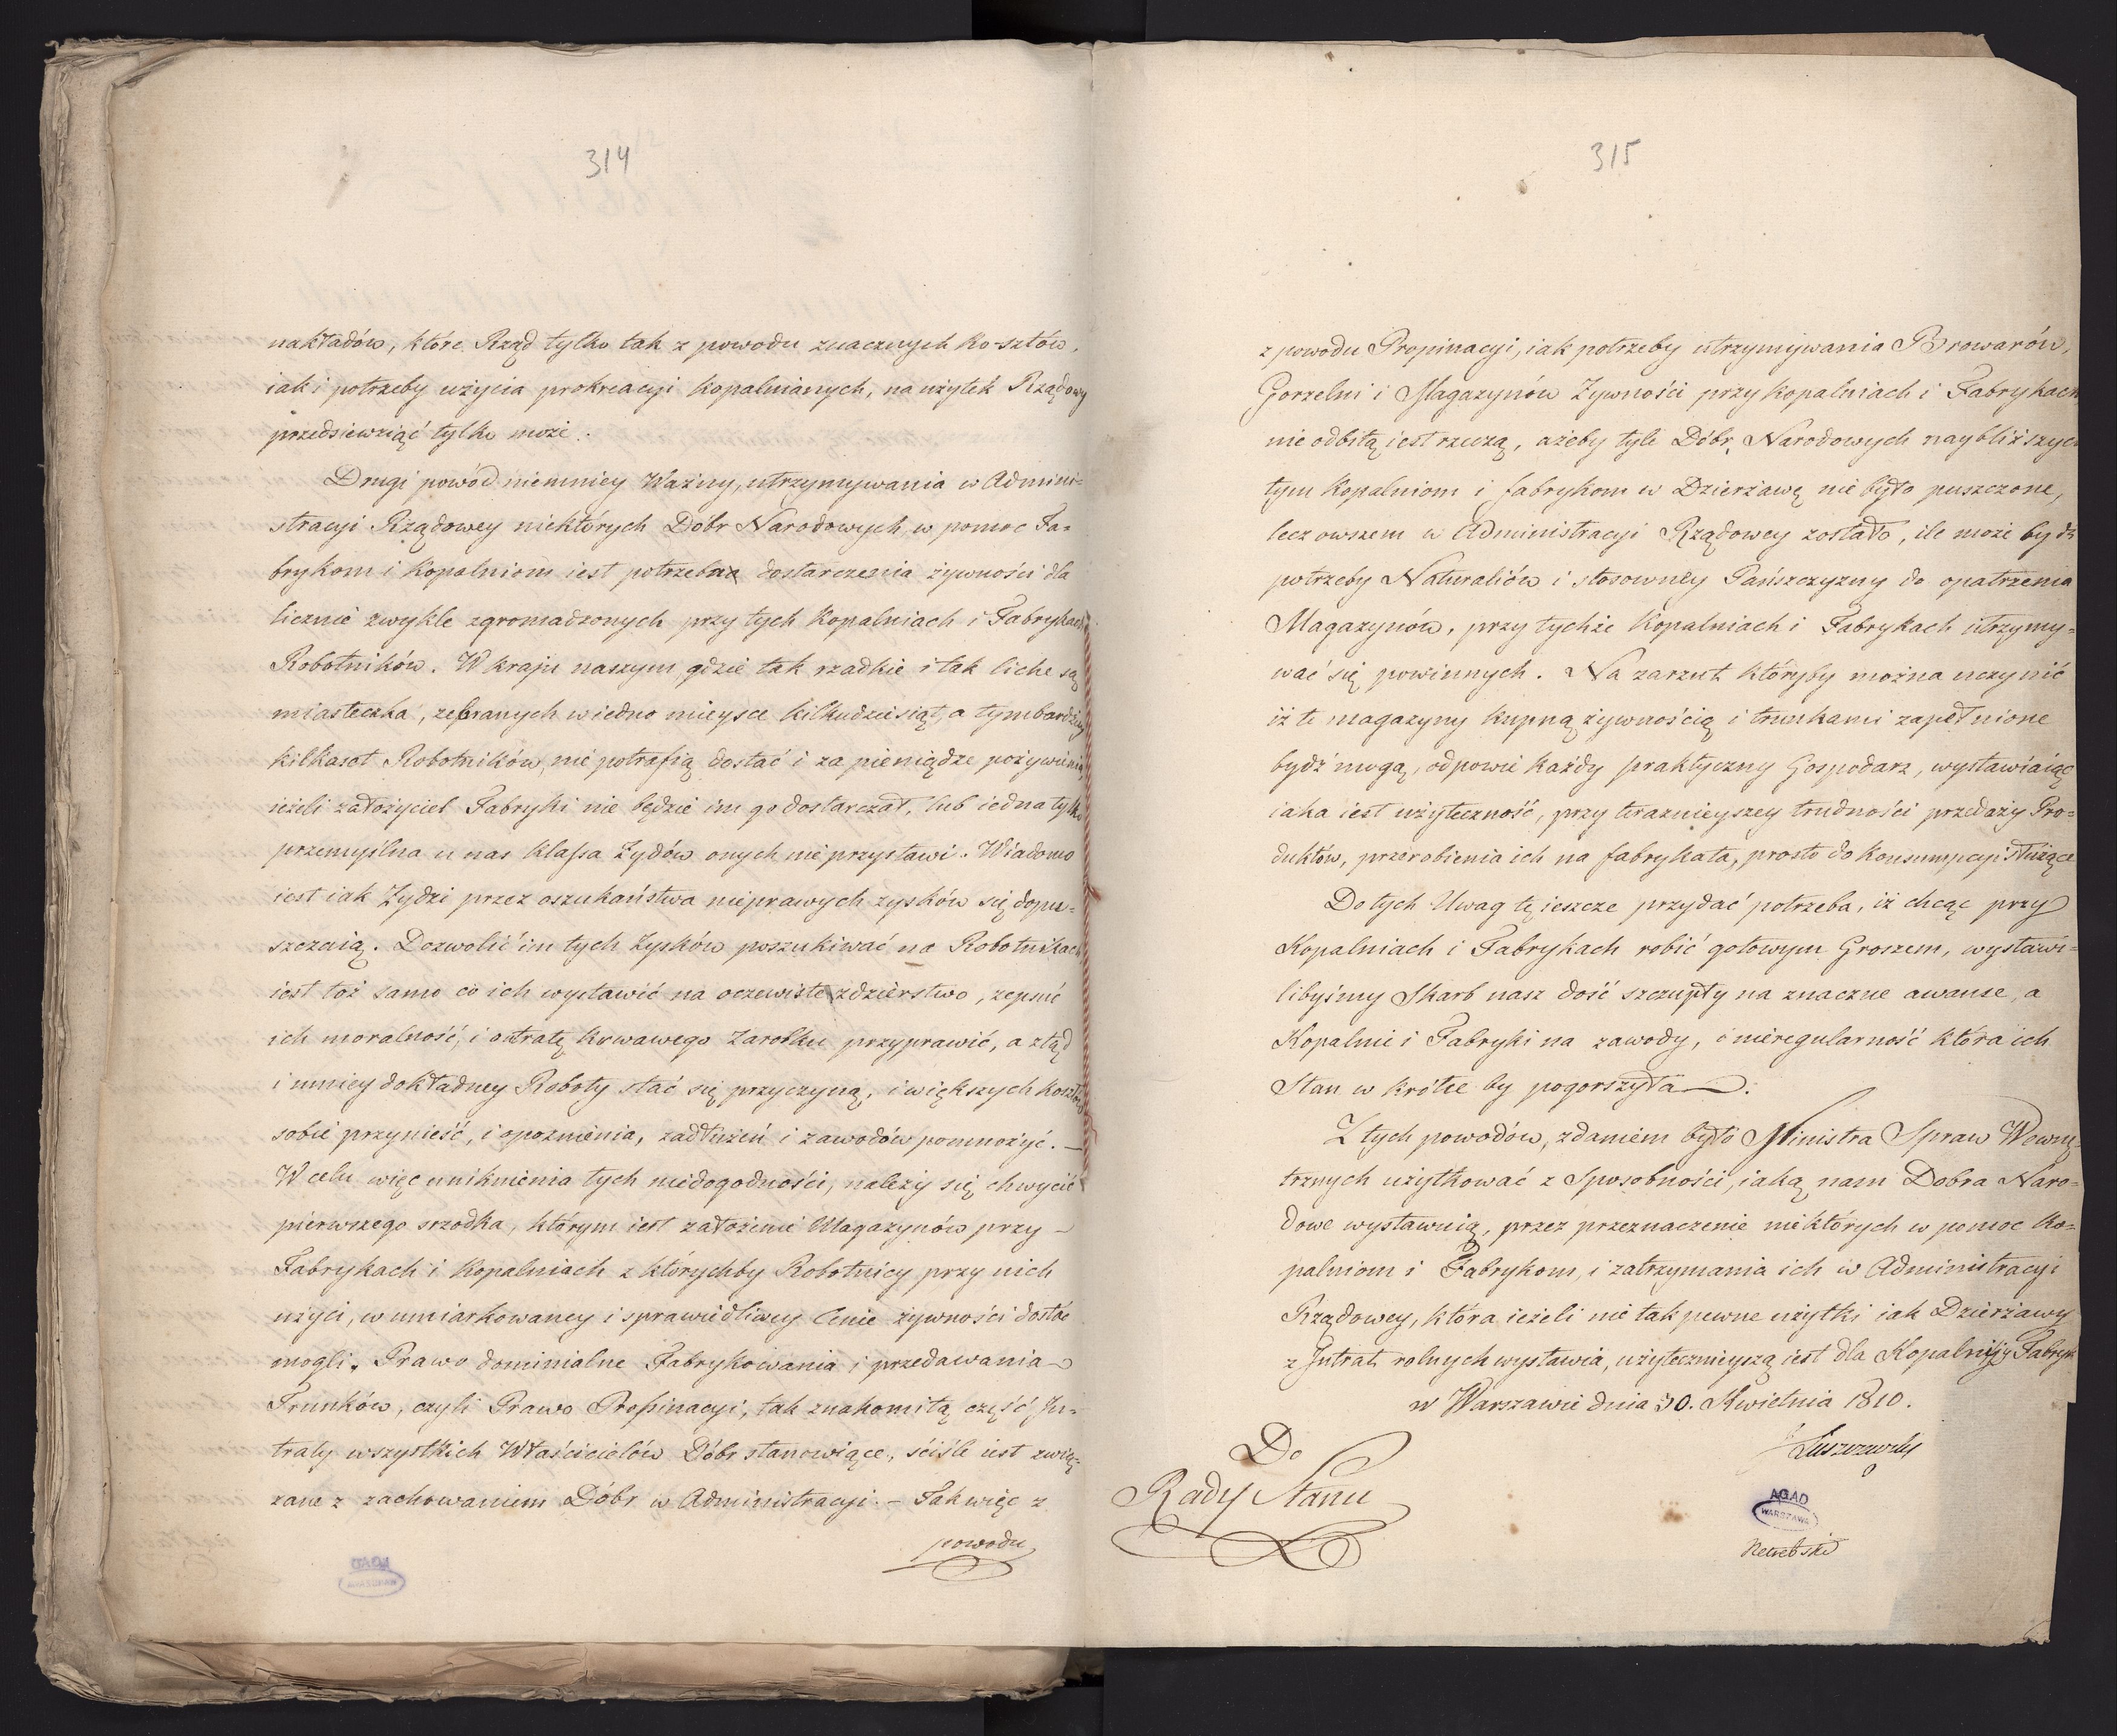 314
nakładów, które Rząd tylko tak z powodu znacznych Ko-sztów,
iak i potrzeby użycia prokreacyi Kopalnianych, na użytek Rządowy
przedsiewziąć tylko może.
Drugi powód niemniey Ważny, utrzymywania w Admini=
stracyi Rządowey niektórych Dóbr Narodowych, w pomoc Fa=
brykom i Kopalniom iest potrzeba dostarczenia żywności dla
licznie zwykle zgromadzonych przy tych Kopalniach i Fabrykach
Robotników. W kraju naszym, gdzie tak rzadkie i tak liche są
miasteczka, zebranych w iedno mieysce kilkudziesiąt, a tymbardziey
kilkaset Robotników, nie potrafią dostać i za pieniądze pożywienia
ieżeli założyciel Fabryki nie będzie im go dostarczał, lub iedna tylko
przemyślna u nas klassa Żydów onych nie przystawi. Wiadomo
iest iak Żydzi przez oszukaństwa nieprawych zysków się dopu=
szczaią. Dozwolić im tych Zysków poszukiwać na Robotnikach
iest toż samo co ich wystawić na oczewiste zdzierstwo, zepsuć
ich moralność, i o utratę krwawego Zarobku przyprawić, a ztąd
i mniey dokładney Roboty stać się przyczyną, i większych kosztów
sobie przynieść, i opoznienia, zadłużeń i zawodów pomnożyć. —
W celu więc uniknienia tych niedogodności, należy się chwycić
pierwszego srzodka, którym iest założenie Magazynów przy —
Fabrykach i Kopalniach z którychby Robotnicy przy nich
użyci, w umiarkowaney i sprawiedliwey Cenie żywności dostać
mogli. Prawo dominialne Fabrykowania i przedawania —
Trunków, czyli Prawo Propinacyi, tak znakomitą część In=
traty wszystkich Właścicielów Dóbr stanowiące, ściśle iest zwią=
zane z zachowaniem Dóbr w Administracyi. — Tak więc z
powodu
315
z powodu Propinacyi, iak potrzeby utrzymywania Browarów,
Gorzelni i Magazynów Żywności przy Kopalniach i Fabrykach
nie odbitą iest rzeczą, ażeby tyle Dóbr Narodowych naybliższych
tym Kopalniom i fabrykom w Dzierżawę nie było puszczone,
lecz owszem w Administracyi Rządowey zostało, ile może bydź
potrzeby Naturaliów i stosowney Pańszczyzny do opatrzenia
Magazynów, przy tychże Kopalniach i Fabrykach utrzymy=
wać się powinnych. Na zarzut któryby można uczynić
iż te magazyny kupną żywnością i trunkami zapełnione
bydź mogą, odpowie każdy praktyczny Gospodarz, wystawiaiąc
iaka iest użyteczność, przy teraznieyszey trudności przedaży Pro=
duktów, przerobienia ich na fabrykata, prosto do Konsumpcyi służące
Do tych Uwag tę ieszcze przydać potrzeba, iż chcąc przy
Kopalniach i Fabrykach robić gotowym Groszem, wystawi=
libyśmy Skarb nasz dość szczupły na znaczne awanse, a
Kopalnie i Fabryki na zawody, i nieregularność która ich
Stan w krótce by pogorszyła —.
Z tych powodów, zdaniem było Ministra Spraw Wewnę=
trznych użytkować z Sposobności, iaką nam Dobra Naro=
dowe wystawuią, przez przeznaczenie niektórych w pomoc Ko=
palniom i Fabrykom, i zatrzymania ich w Administracyi
Rządowey, która ieżeli nie tak pewne użytki iak Dzierżawy
z Intrat rolnych wystawia, użytecznieyszą iest dla Kopalni y Fabryk
w Warszawie dnia 30. Kwietnia 1810.
Do
Rady Stanu
Łuszczewski
AGAD
WARSZAWA